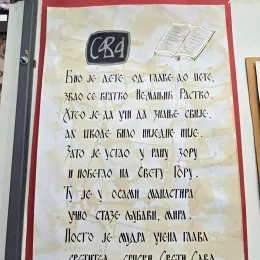 САВА
Био је дете од главе до пете,
звао се кратко Немањић Растко.
Хтео је да учи да знање свије,
ал школе било ниједне није.
Зато је устао у рану зору
и побегао на Свету Гору.
Ту је у осами манастира
учио стазе љубави, мира.
Посто је мудра учена глава
светитељ српски Свети Сава